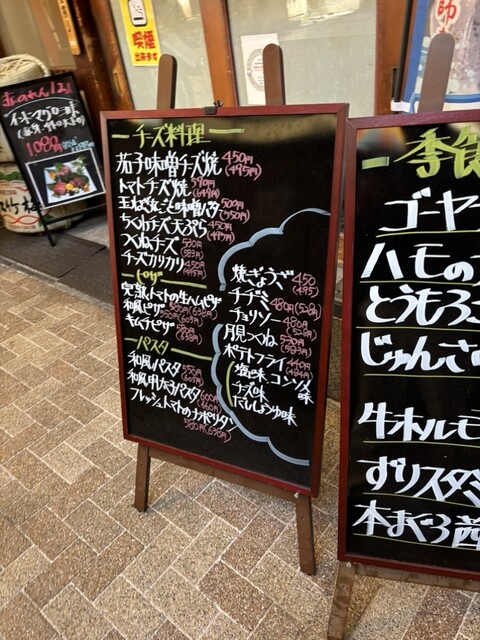 喫煙
出来ます
赤のれん
1,080円
チーズ料理
茄子味噌チーズ焼 450円(495円)
トマトチーズ焼 590円(649円)
玉ねぎ丸ごと味噌バター 500円(550円)
ちくわチーズ天ぷら 450円(495円)
つくねチーズ 530円(583円)
チーズカリカリ 450円(495円)
ピザ
完熟トマトの生ハムピザ 580円(638円)
和風ピザ 550円(605円)
キムチピザ 580円(638円)
パスタ
和風パスタ 550円(605円)
和風明太子パスタ 600円(660円)
フレッシュトマトのナポリタン 580円(638円)
焼ぎょうざ 450(495)
チヂミ 480円(528円)
チョリソー 480円(528円)
月見つくね 530円(583円)
ポテトフライ 440円(484円)
塩味 コンソメ味
チーズ味
だししょうゆ味
季食
ゴーヤ
ハモの
とうもろこ
じゅんさ
牛ホルモ
ずりスタミ
本まぐろ